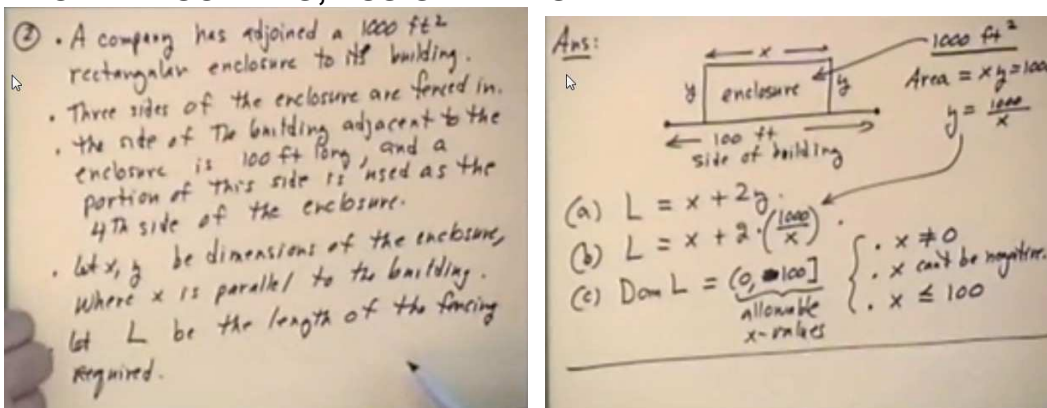 ② • A company has adjoined a 1000 ft²
rectangular enclosure to its building.
• Three sides of the enclosure are fenced in.
• the side of The building adjacent to the
enclosure is 100 ft long, and a
portion of this side is used as the
4Th side of the enclosure.
• let x, y be dimensions of the enclosure,
where x is parallel to the building.
let L be the length of the fencing
required.
Ans:
x
1000 ft²
y
enclosure
y
Area = xy = 1000
y = 1000/x
100 ft
side of building
(a) L = x + 2y.
(b) L = x + 2·(1000/x).
(c) Dom L = (0, 100]
allowable
x-values
• x ≠ 0
• x can't be negative.
• x ≤ 100